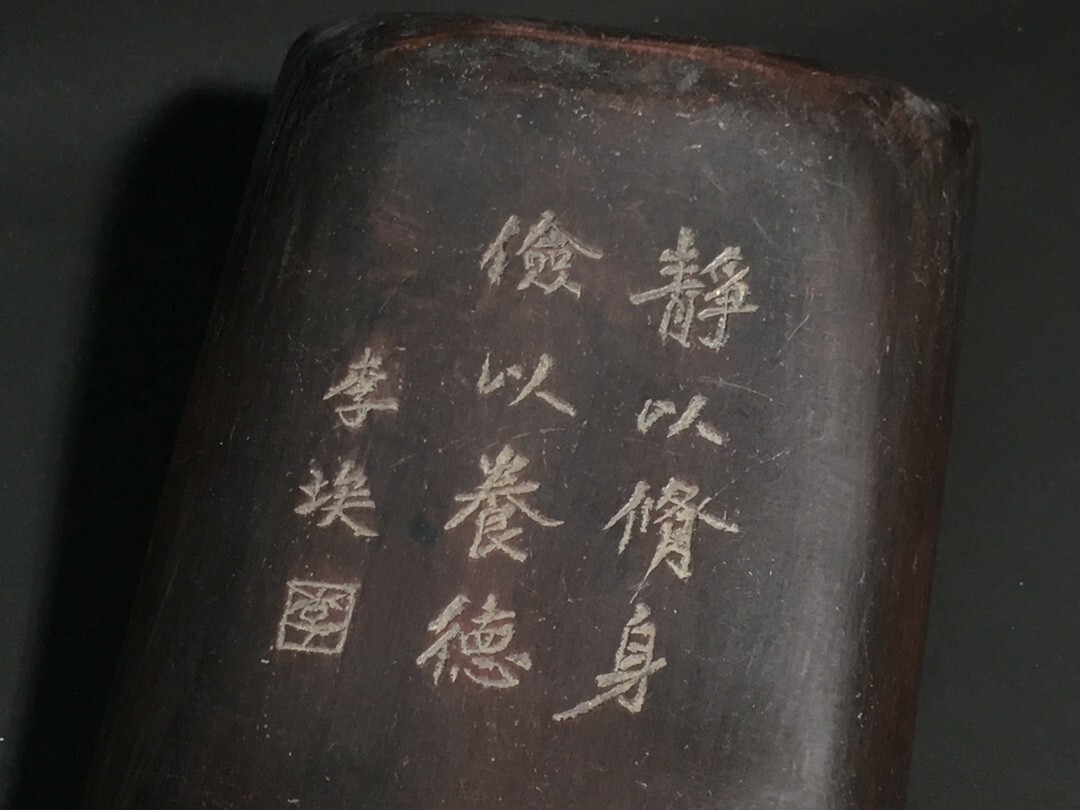 靜以脩身
儉以養德
李埃
李